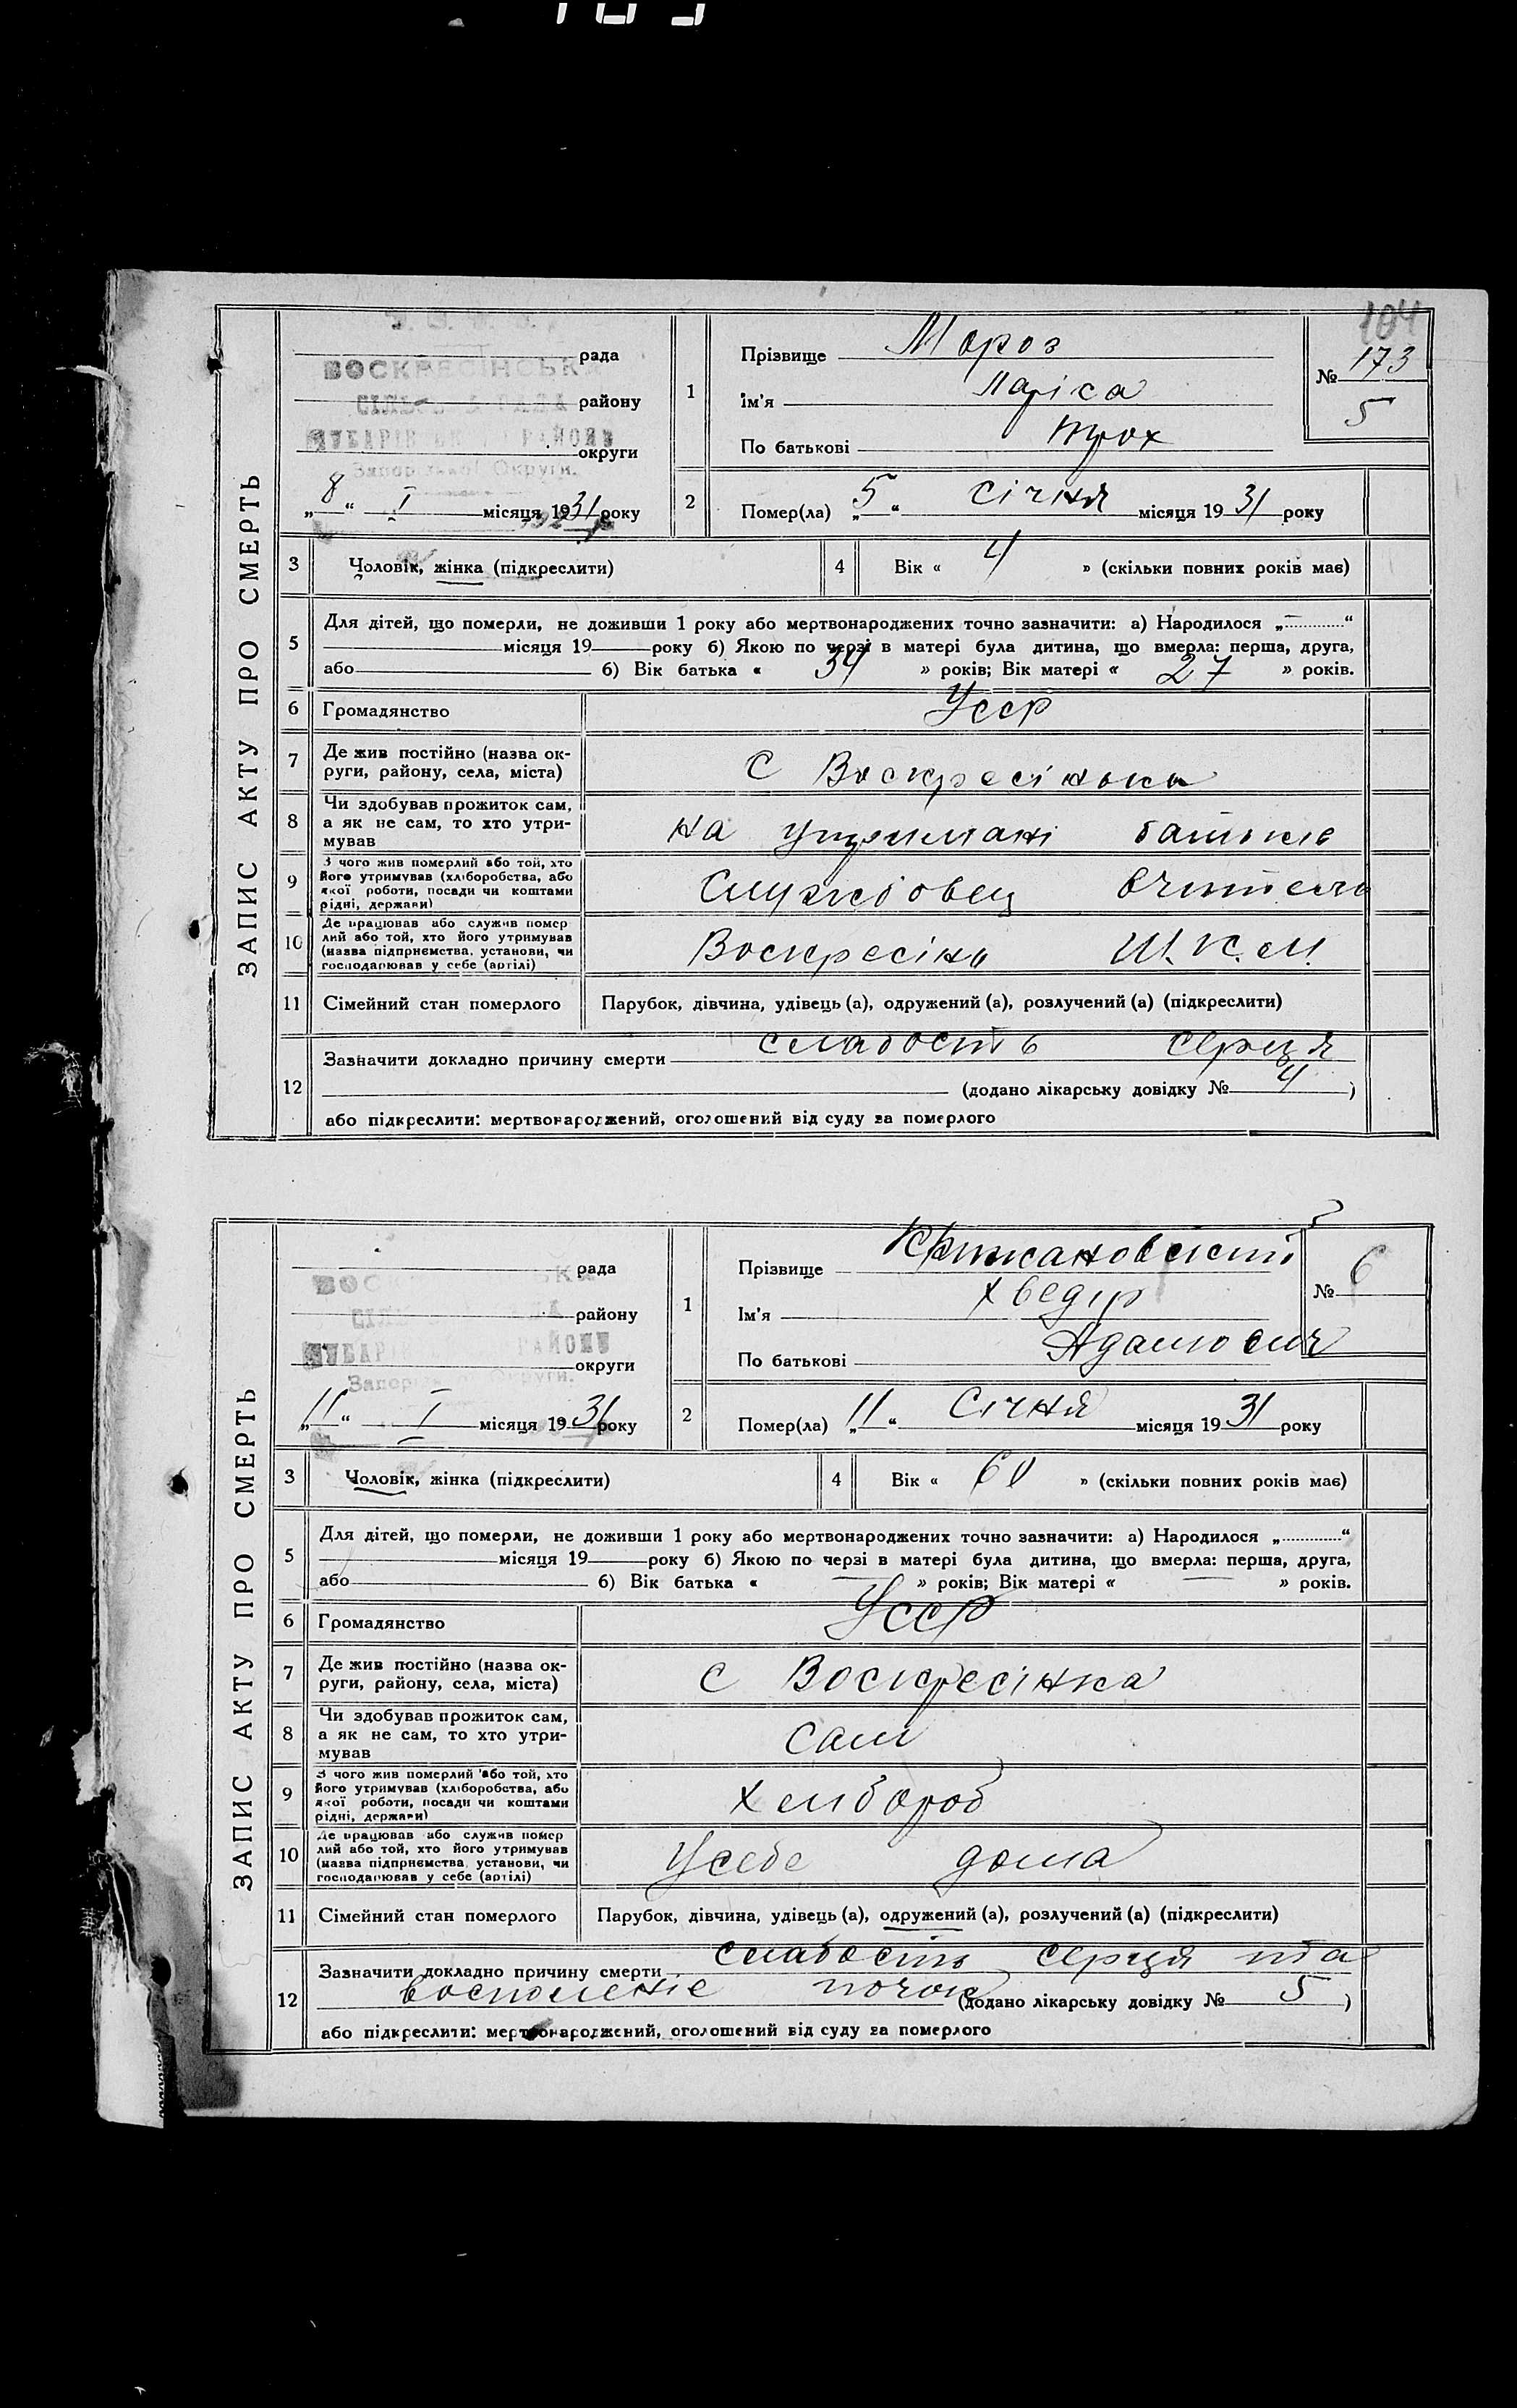 104
ЗАПИС АКТУ ПРО СМЕРТЬ
рада
ВОСКРЕСІНСЬКА
району
округи
Запорізької Округи.
„8“ I місяця 1931 року
1
Прізвище Мороз
Ім'я Ларіса
По батькові Трох
№ 173
5
2
Помер(ла) „5“ Січня місяця 1931 року
3
Чоловік, жінка (підкреслити)
4
Вік « 4 » (скільки повних років має)
5
Для дітей, що померли, не доживши 1 року або мертвонароджених точно зазначити: а) Народилося „ “
місяця 19 року б) Якою по черзі в матері була дитина, що вмерла: перша, друга,
або б) Вік батька « 34 » років; Вік матері « 27 » років.
6
Громадянство
Усср
7
Де жив постійно (назва ок-
руги, району, села, міста)
с Воскресінька
8
Чи здобував прожиток сам,
а як не сам, то хто утри-
мував
на утримані батьків
9
З чого жив померлий або той, хто
його утримував (хліборобства, або
якої роботи, посади чи коштами
рідні, держави)
Службовец вчитель
10
Де працював або служив помер
лий або той, хто його утримував
(назва підприємства, установи, чи
господарював у себе (артілі)
Воскресінь Ш.К.М.
11
Сімейний стан померлого
Парубок, дівчина, удівець (а), одружений (а), розлучений (а) (підкреслити)
12
Зазначити докладно причину смерти слабость серця
(додано лікарську довідку № 4 )
або підкреслити: мертвонароджений, оголошений від суду за померлого
ЗАПИС АКТУ ПРО СМЕРТЬ
рада
району
округи
„11“ I місяця 1931 року
1
Прізвище Крижановский
Ім'я Хведір
По батькові Адамович
№ 6
2
Помер(ла) „11“ Січня місяця 1931 року
3
Чоловік, жінка (підкреслити)
4
Вік « 60 » (скільки повних років має)
5
Для дітей, що померли, не доживши 1 року або мертвонароджених точно зазначити: а) Народилося „ “
місяця 19 року б) Якою по черзі в матері була дитина, що вмерла: перша, друга,
або б) Вік батька « — » років; Вік матері « — » років.
6
Громадянство
Усср
7
Де жив постійно (назва ок-
руги, району, села, міста)
с Воскресінка
8
Чи здобував прожиток сам,
а як не сам, то хто утри-
мував
сам
9
З чого жив померлий або той, хто
його утримував (хліборобства, або
якої роботи, посади чи коштами
рідні, держави)
Хлибороб
10
Де працював або служив помер
лий або той, хто його утримував
(назва підприємства, установи, чи
господарював у себе (артілі)
Усебе дома
11
Сімейний стан померлого
Парубок, дівчина, удівець (а), одружений (а), розлучений (а) (підкреслити)
12
Зазначити докладно причину смерти слабость серця та
восполеніе почок (додано лікарську довідку № 5 )
або підкреслити: мертвонароджений, оголошений від суду за померлого